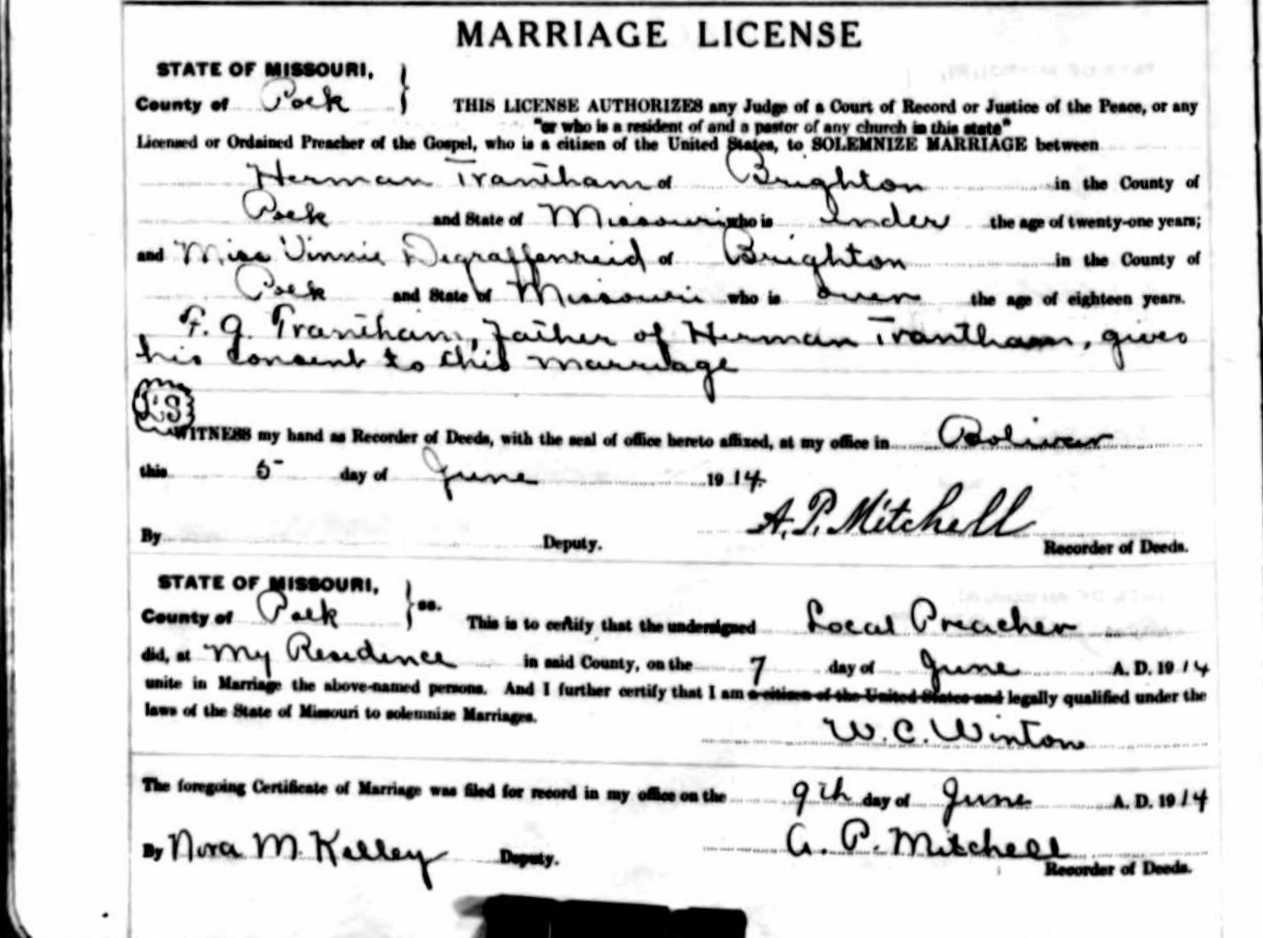 MARRIAGE LICENSE
STATE OF MISSOURI,
County of Polk
THIS LICENSE AUTHORIZES any Judge of a Court of Record or Justice of the Peace, or any
"or who is a resident of and a pastor of any church in this state"
Licensed or Ordained Preacher of the Gospel, who is a citizen of the United States, to SOLEMNIZE MARRIAGE between
Herman Trantham of Brighton in the County of
Polk and State of Missouri who is under the age of twenty-one years;
and Miss Vinnie Degraffenreid of Brighton in the County of
Polk and State of Missouri who is over the age of eighteen years.
F. G. Trantham, Father of Herman Trantham, gives
his consent to this marriage
L.S
WITNESS my hand as Recorder of Deeds, with the seal of office hereto affixed, at my office in Bolivar
this 5 day of June 1914.
A. P. Mitchell
By Deputy. Recorder of Deeds.
STATE OF MISSOURI,
County of Polk ss. This is to certify that the undersigned Local Preacher
did, at My Residence in said County, on the 7 day of June A. D. 1914
unite in Marriage the above-named persons. And I further certify that I am a citizen of the United States and legally qualified under the
laws of the State of Missouri to solemnize Marriages.
W. C. Winton
The foregoing Certificate of Marriage was filed for record in my office on the 9th day of June A. D. 1914
By Nora M. Kelley Deputy. A. P. Mitchell
Recorder of Deeds.